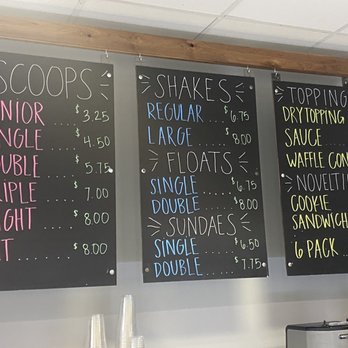 SCOOPS
NIOR ..... $3.25
NGLE ..... $4.50
UBLE ..... $5.75
IPLE ..... $7.00
IGHT ..... $8.00
T ..... $8.00
SHAKES
REGULAR .. $6.75
LARGE ..... $8.00
FLOATS
SINGLE ..... $6.75
DOUBLE ..... $8.00
SUNDAES
SINGLE ..... $6.50
DOUBLE ..... $7.75
TOPPING
DRY TOPPING
SAUCE ....
WAFFLE CON
NOVELTI
COOKIE
SANDWICH
6 PACK ....